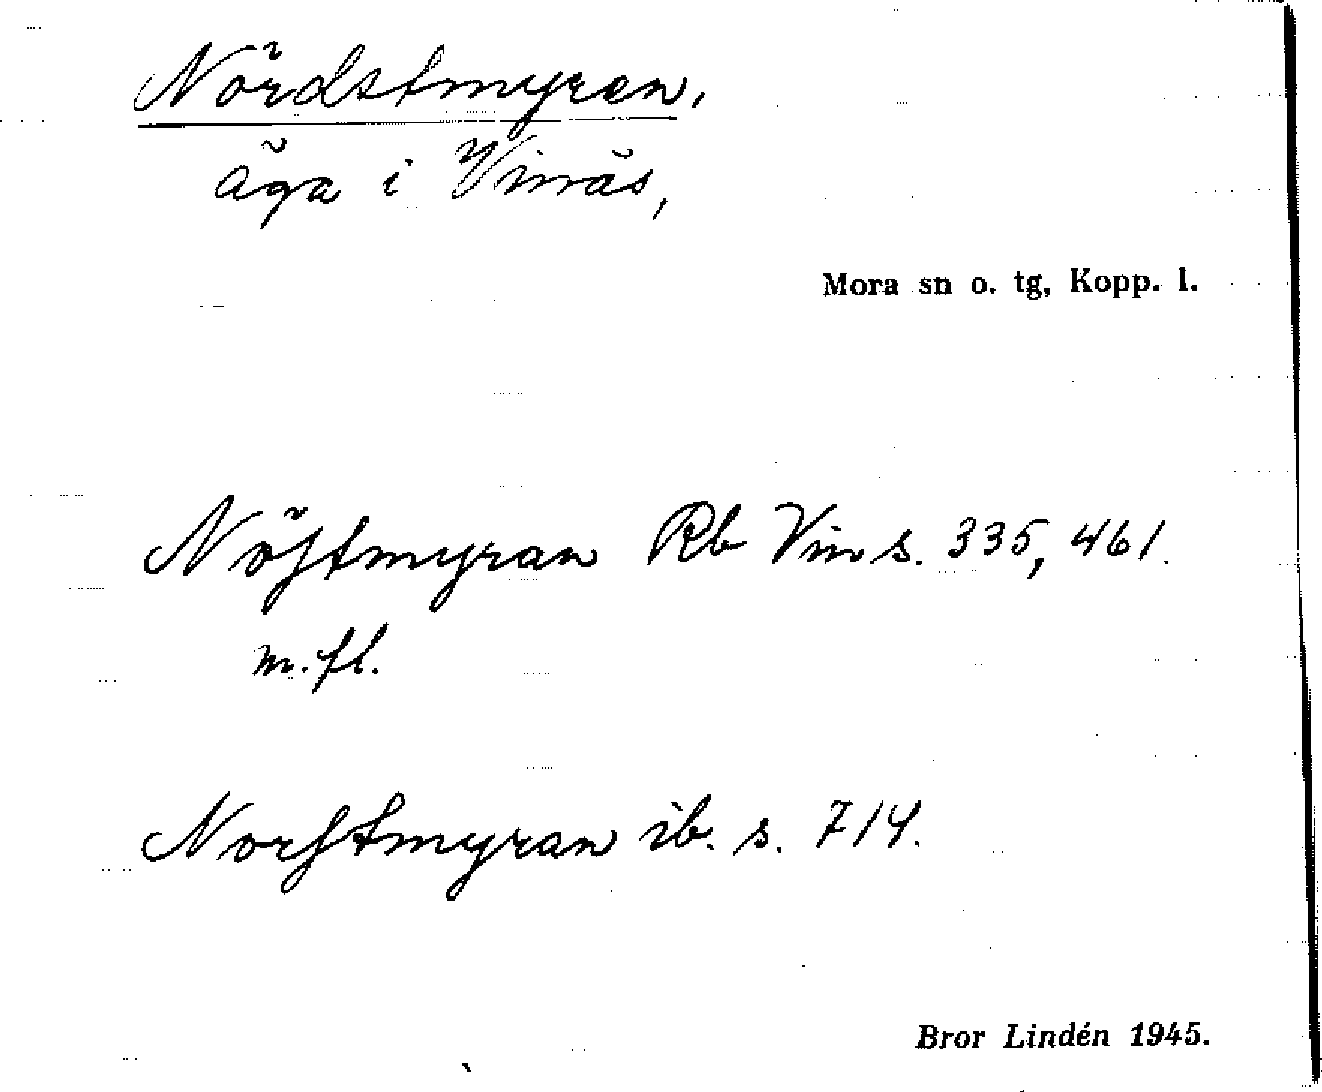 Nördstmyren,
äga i Vinäs,
Mora sn o. tg, Kopp. l.
Nöstmyran Rb Vin s. 335, 461.
m. fl.
Norstmyran ib. s. 714.
Bror Lindén 1945.